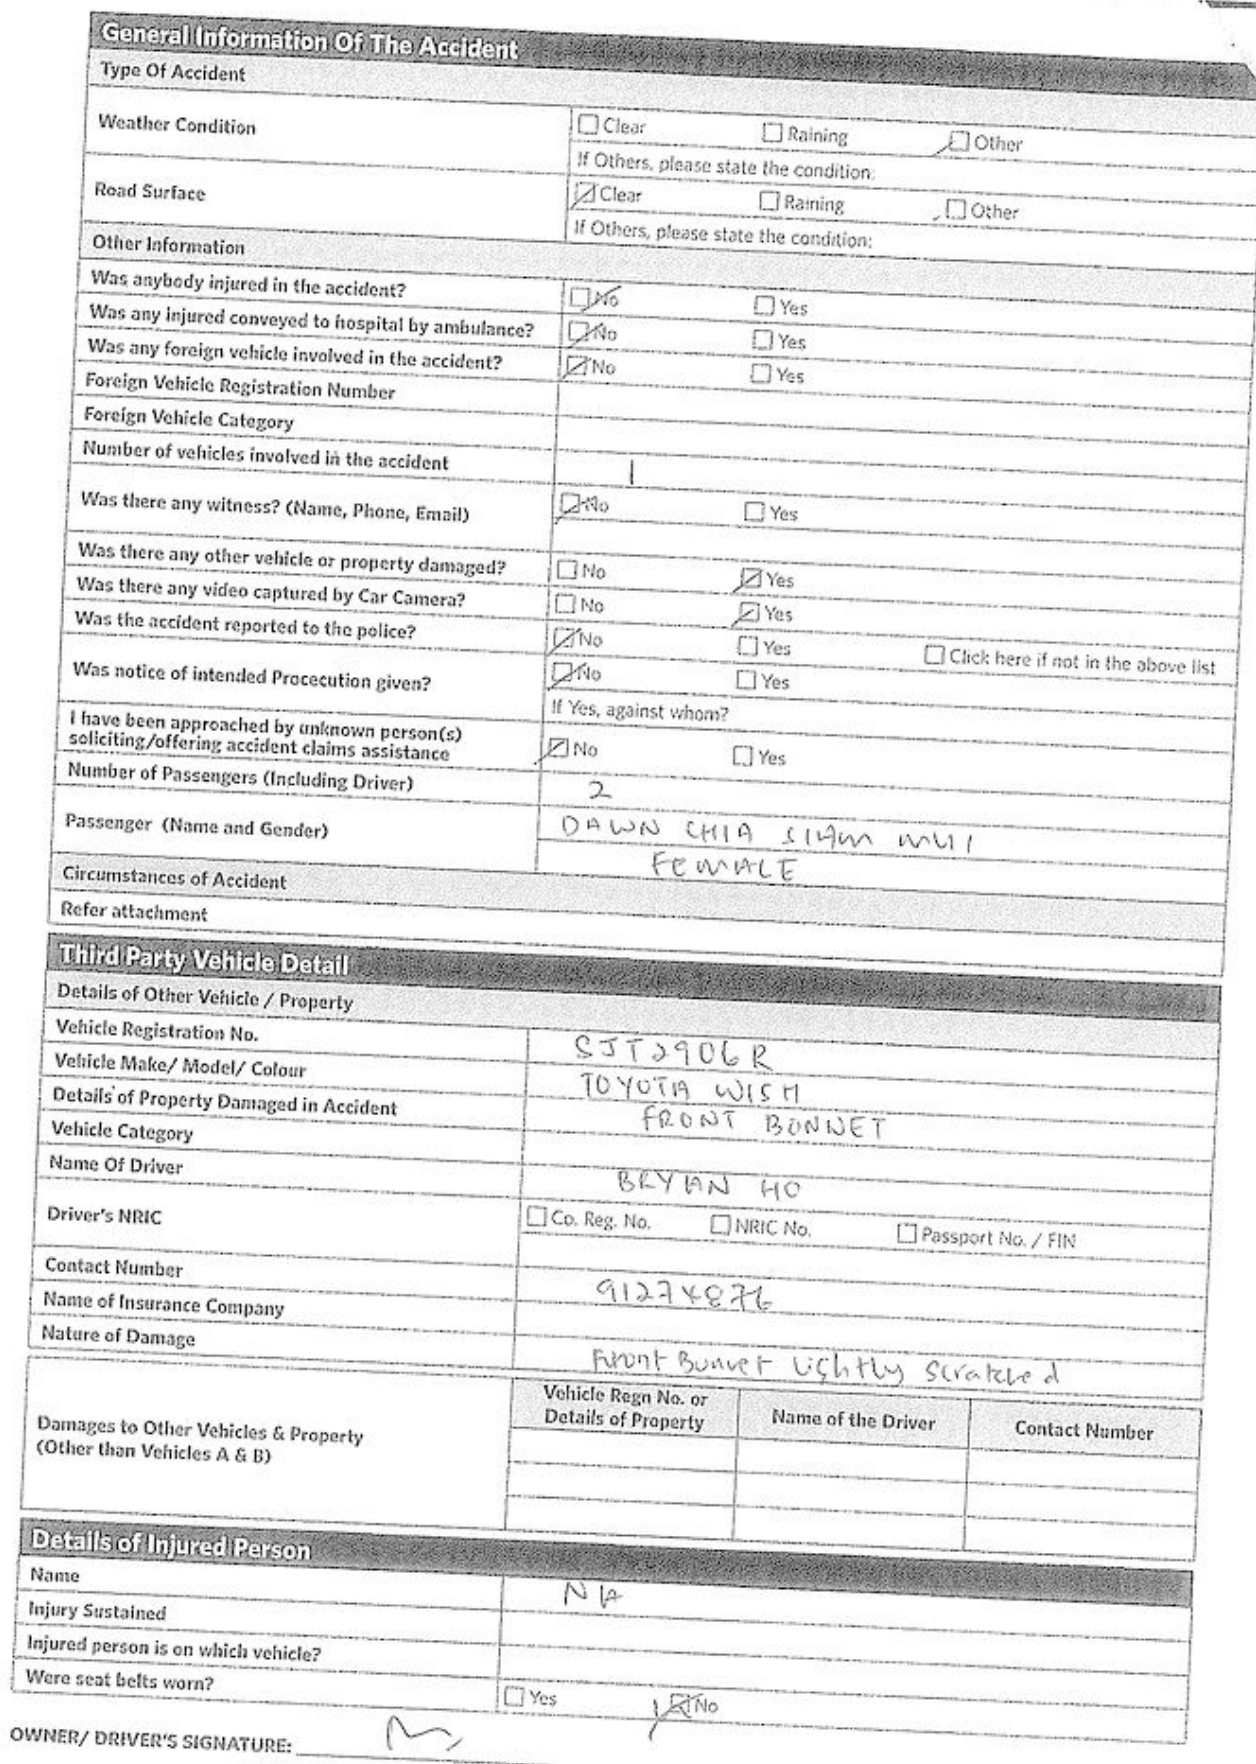 General Information Of The Accident
Type Of Accident
Weather Condition
Clear Raining Other
If Others, please state the condition:
Road Surface
Clear Raining Other
If Others, please state the condition:
Other Information
Was anybody injured in the accident? No Yes
Was any injured conveyed to hospital by ambulance? No Yes
Was any foreign vehicle involved in the accident? No Yes
Foreign Vehicle Registration Number
Foreign Vehicle Category
Number of vehicles involved in the accident 1
Was there any witness? (Name, Phone, Email) No Yes
Was there any other vehicle or property damaged? No Yes
Was there any video captured by Car Camera? No Yes
Was the accident reported to the police? No Yes Click here if not in the above list
Was notice of intended Procecution given? No Yes
If Yes, against whom?
I have been approached by unknown person(s)
soliciting/offering accident claims assistance No Yes
Number of Passengers (Including Driver) 2
Passenger (Name and Gender) DAWN CHIA SIAM MUI
FEMALE
Circumstances of Accident
Refer attachment
Third Party Vehicle Detail
Details of Other Vehicle / Property
Vehicle Registration No. SJT2906R
Vehicle Make/ Model/ Colour TOYOTA WISH
Details of Property Damaged in Accident FRONT BONNET
Vehicle Category
Name Of Driver BRYAN HO
Driver's NRIC Co. Reg. No. NRIC No. Passport No. / FIN
Contact Number 91274876
Name of Insurance Company
Nature of Damage Front Bonnet lightly scratched
Damages to Other Vehicles & Property
(Other than Vehicles A & B)
Vehicle Regn No. or
Details of Property
Name of the Driver
Contact Number
Details of Injured Person
Name NA
Injury Sustained
Injured person is on which vehicle?
Were seat belts worn? Yes No
OWNER/ DRIVER'S SIGNATURE: